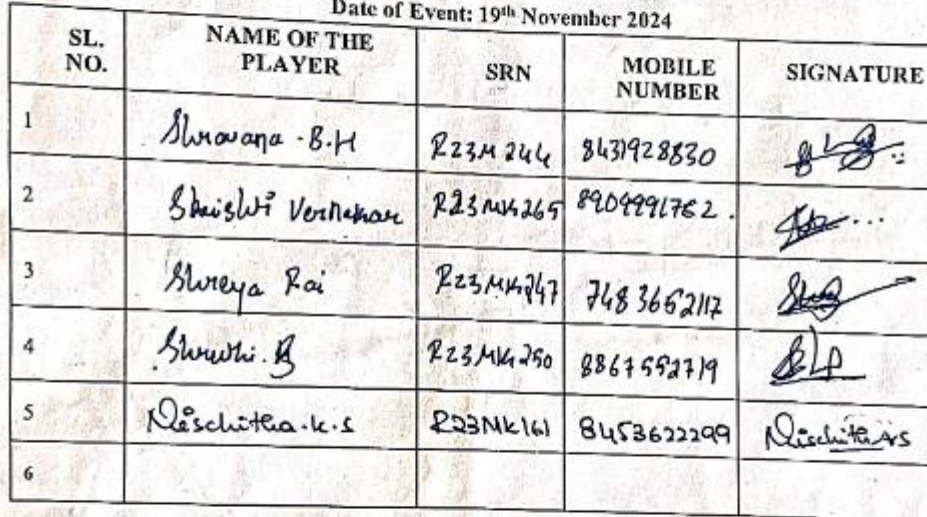 Date of Event: 19th November 2024
SL. NO. NAME OF THE PLAYER SRN MOBILE NUMBER SIGNATURE
1 Shravana .B.H R23M 244 8431928830
2 Vernekar 8909991762 .
3 Shreya Rai R23MK247 7483652117
4 Shruthi. B R23MK250 8867552719
5 Nischitha.k.s R23MK161 8453622299 Nischitha KS
6